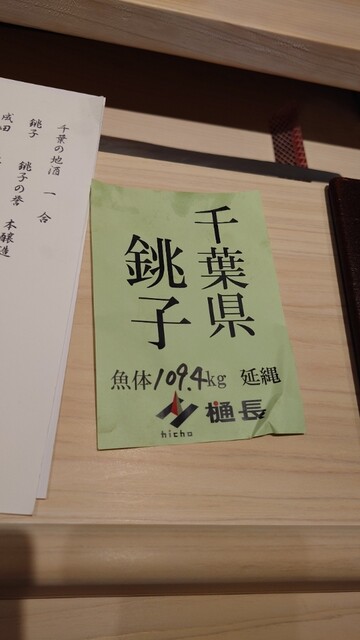 千葉県
銚子
魚体109.4kg 延縄
hicho 樋長
千葉の地酒 一合
銚子 銚子の誉 本醸造
成田